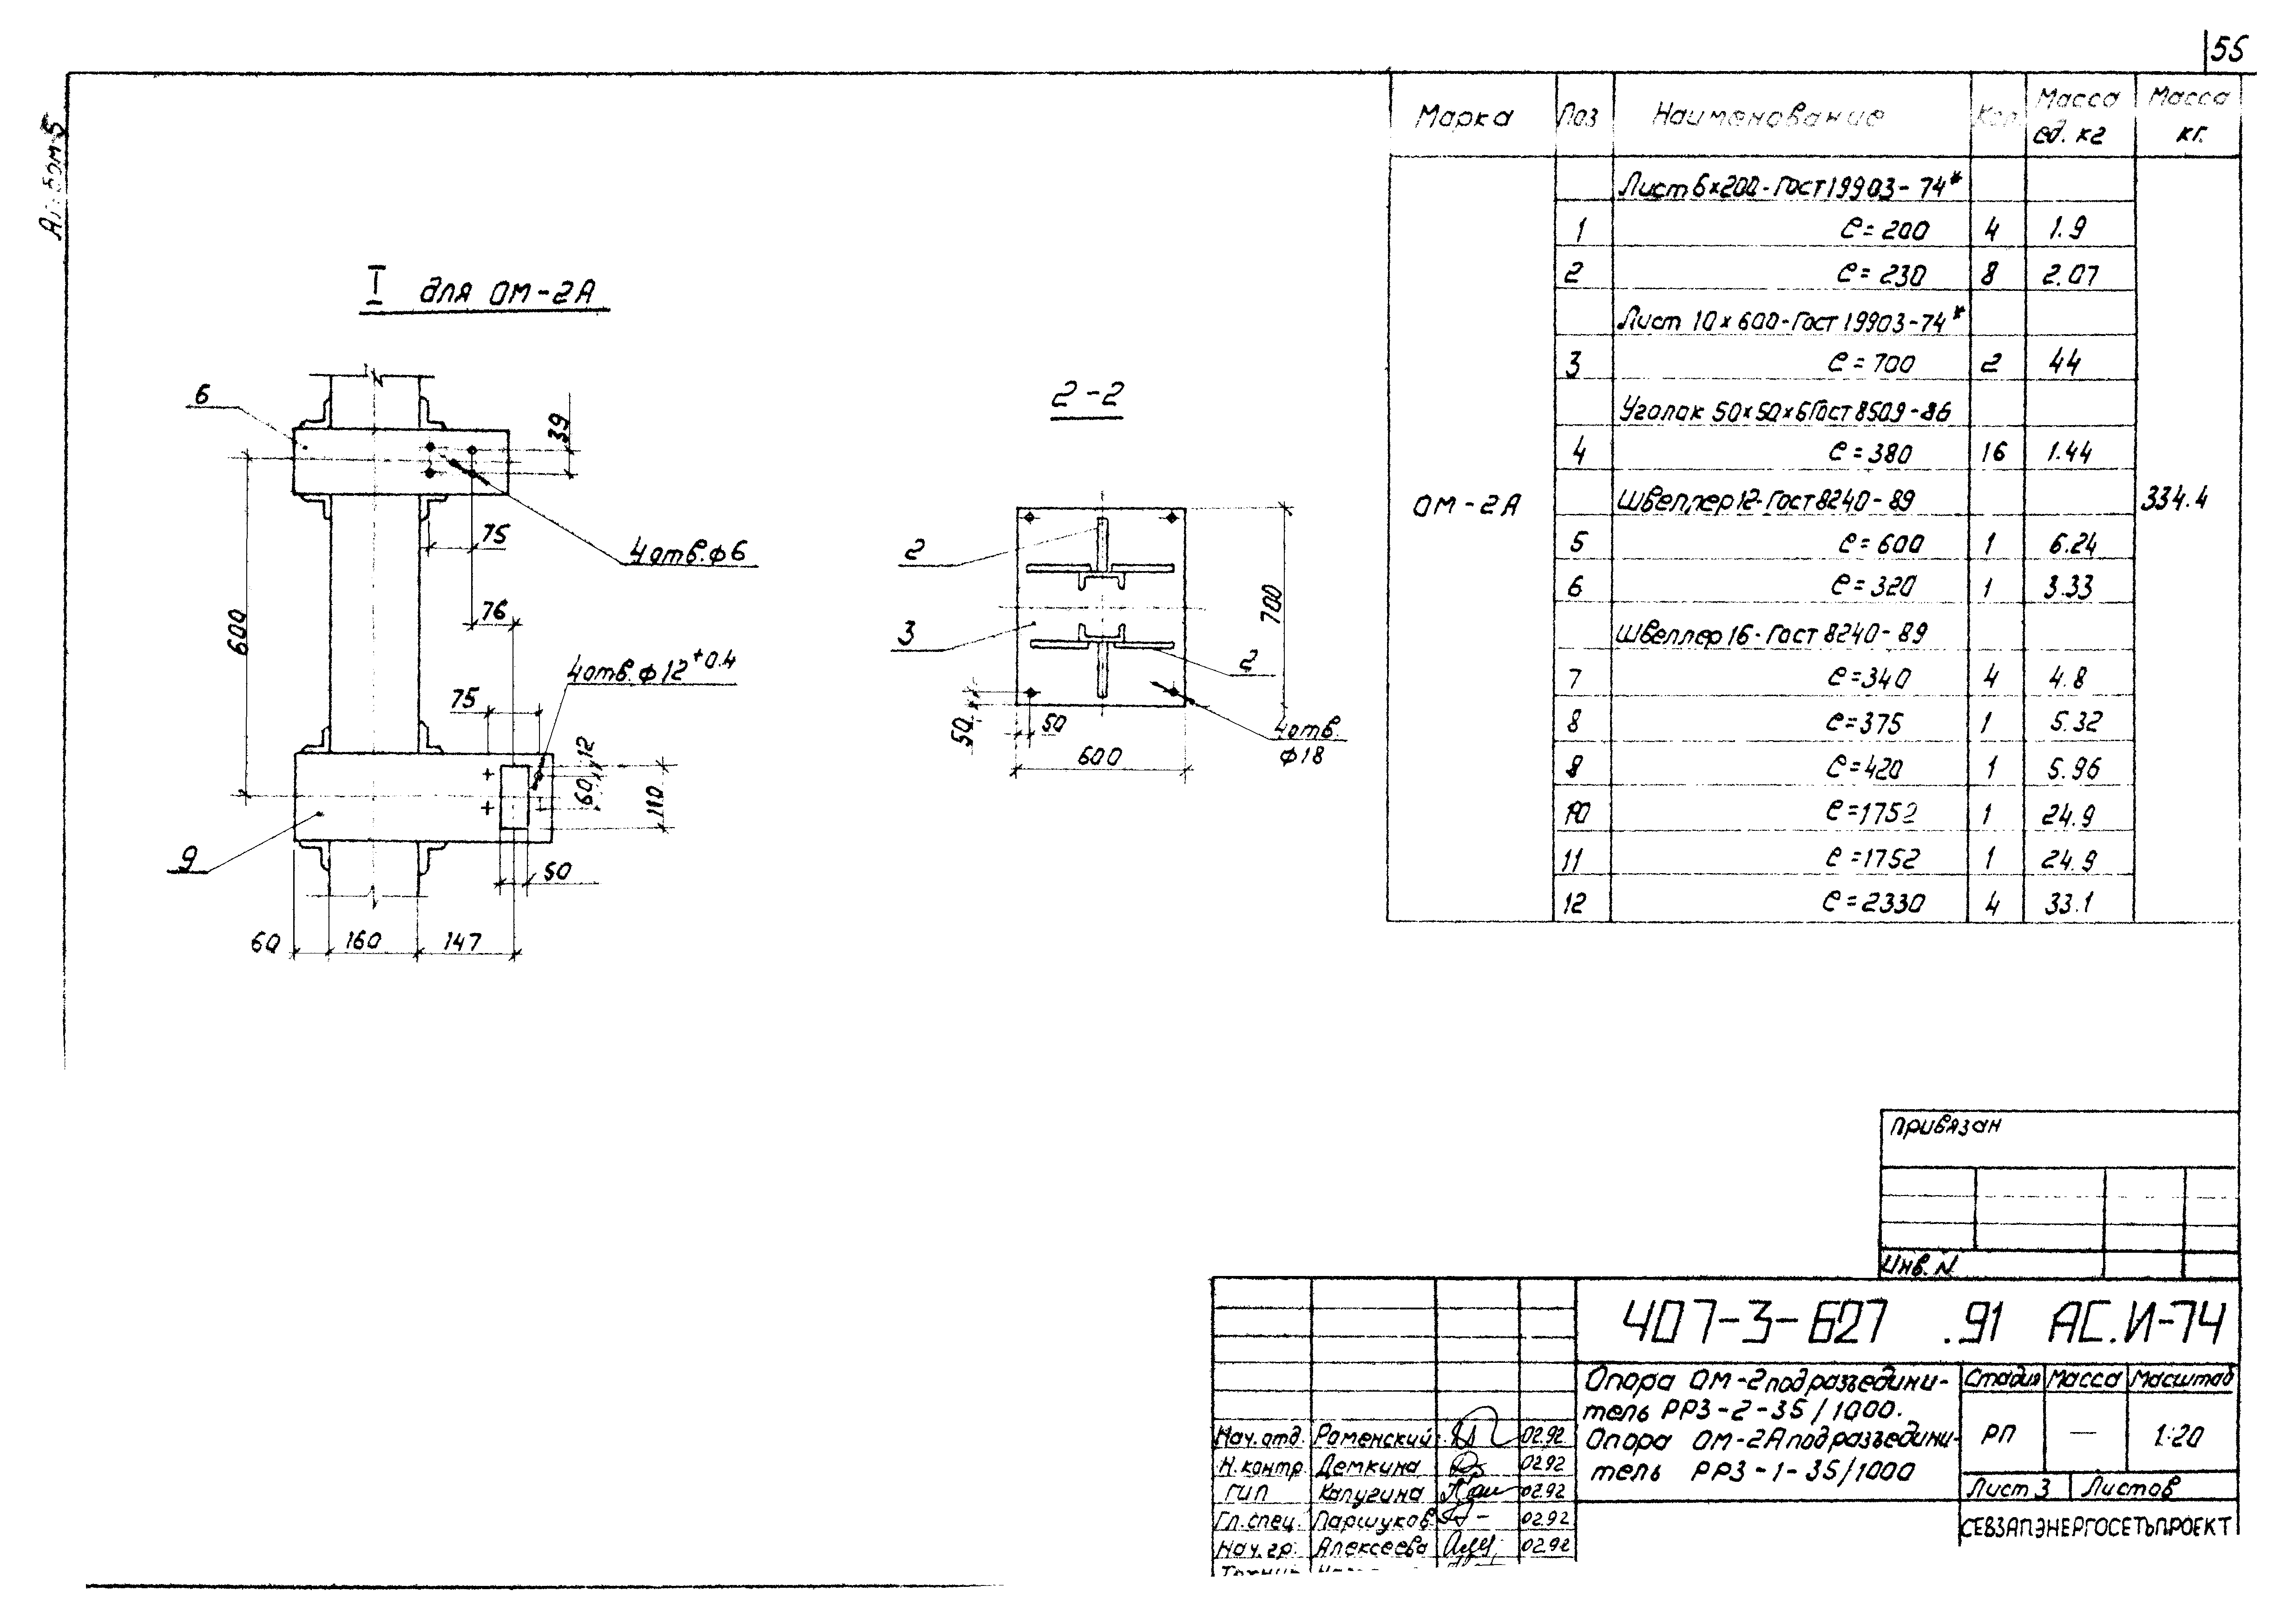 55
Альбом 5
I для ОМ-2А
6
39
75
4 отв. ф6
600
76
4 отв. ф12 +0.4
75
12
60
110
9
50
60 160 147
2-2
2
3
2
700
50
50
4 отв.
ф18
600
Марка Поз Наименование Кол. Масса ед. кг Масса кг.
Лист 6×200-Гост 19903-74*
1 ℓ=200 4 1.9
2 ℓ=230 8 2.07
Лист 10×600-Гост 19903-74*
3 ℓ=700 2 44
Уголок 50×50×6 Гост 8509-86
4 ℓ=380 16 1.44
ОМ-2А Швеллер 12-Гост 8240-89 334.4
5 ℓ=600 1 6.24
6 ℓ=320 1 3.33
Швеллер 16-Гост 8240-89
7 ℓ=340 4 4.8
8 ℓ=375 1 5.32
9 ℓ=420 1 5.96
10 ℓ=1752 1 24.9
11 ℓ=1752 1 24.9
12 ℓ=2330 4 33.1
Привязан
Инв. N
407-3-627 .91 АС.И-74
Опора ОМ-2 под разъедини-
тель РРЗ-2-35/1000.
Опора ОМ-2А под разъедини-
тель РРЗ-1-35/1000
Стадия Масса Масштаб
РП — 1:20
Лист 3 Листов
СЕВЗАПЭНЕРГОСЕТЬПРОЕКТ
Нач. отд. Раменский 02.92
Н. контр. Демкина 02.92
ГИП Калугина 02.92
Гл. спец. Паршуков 02.92
Нач. гр. Алексеева 02.92